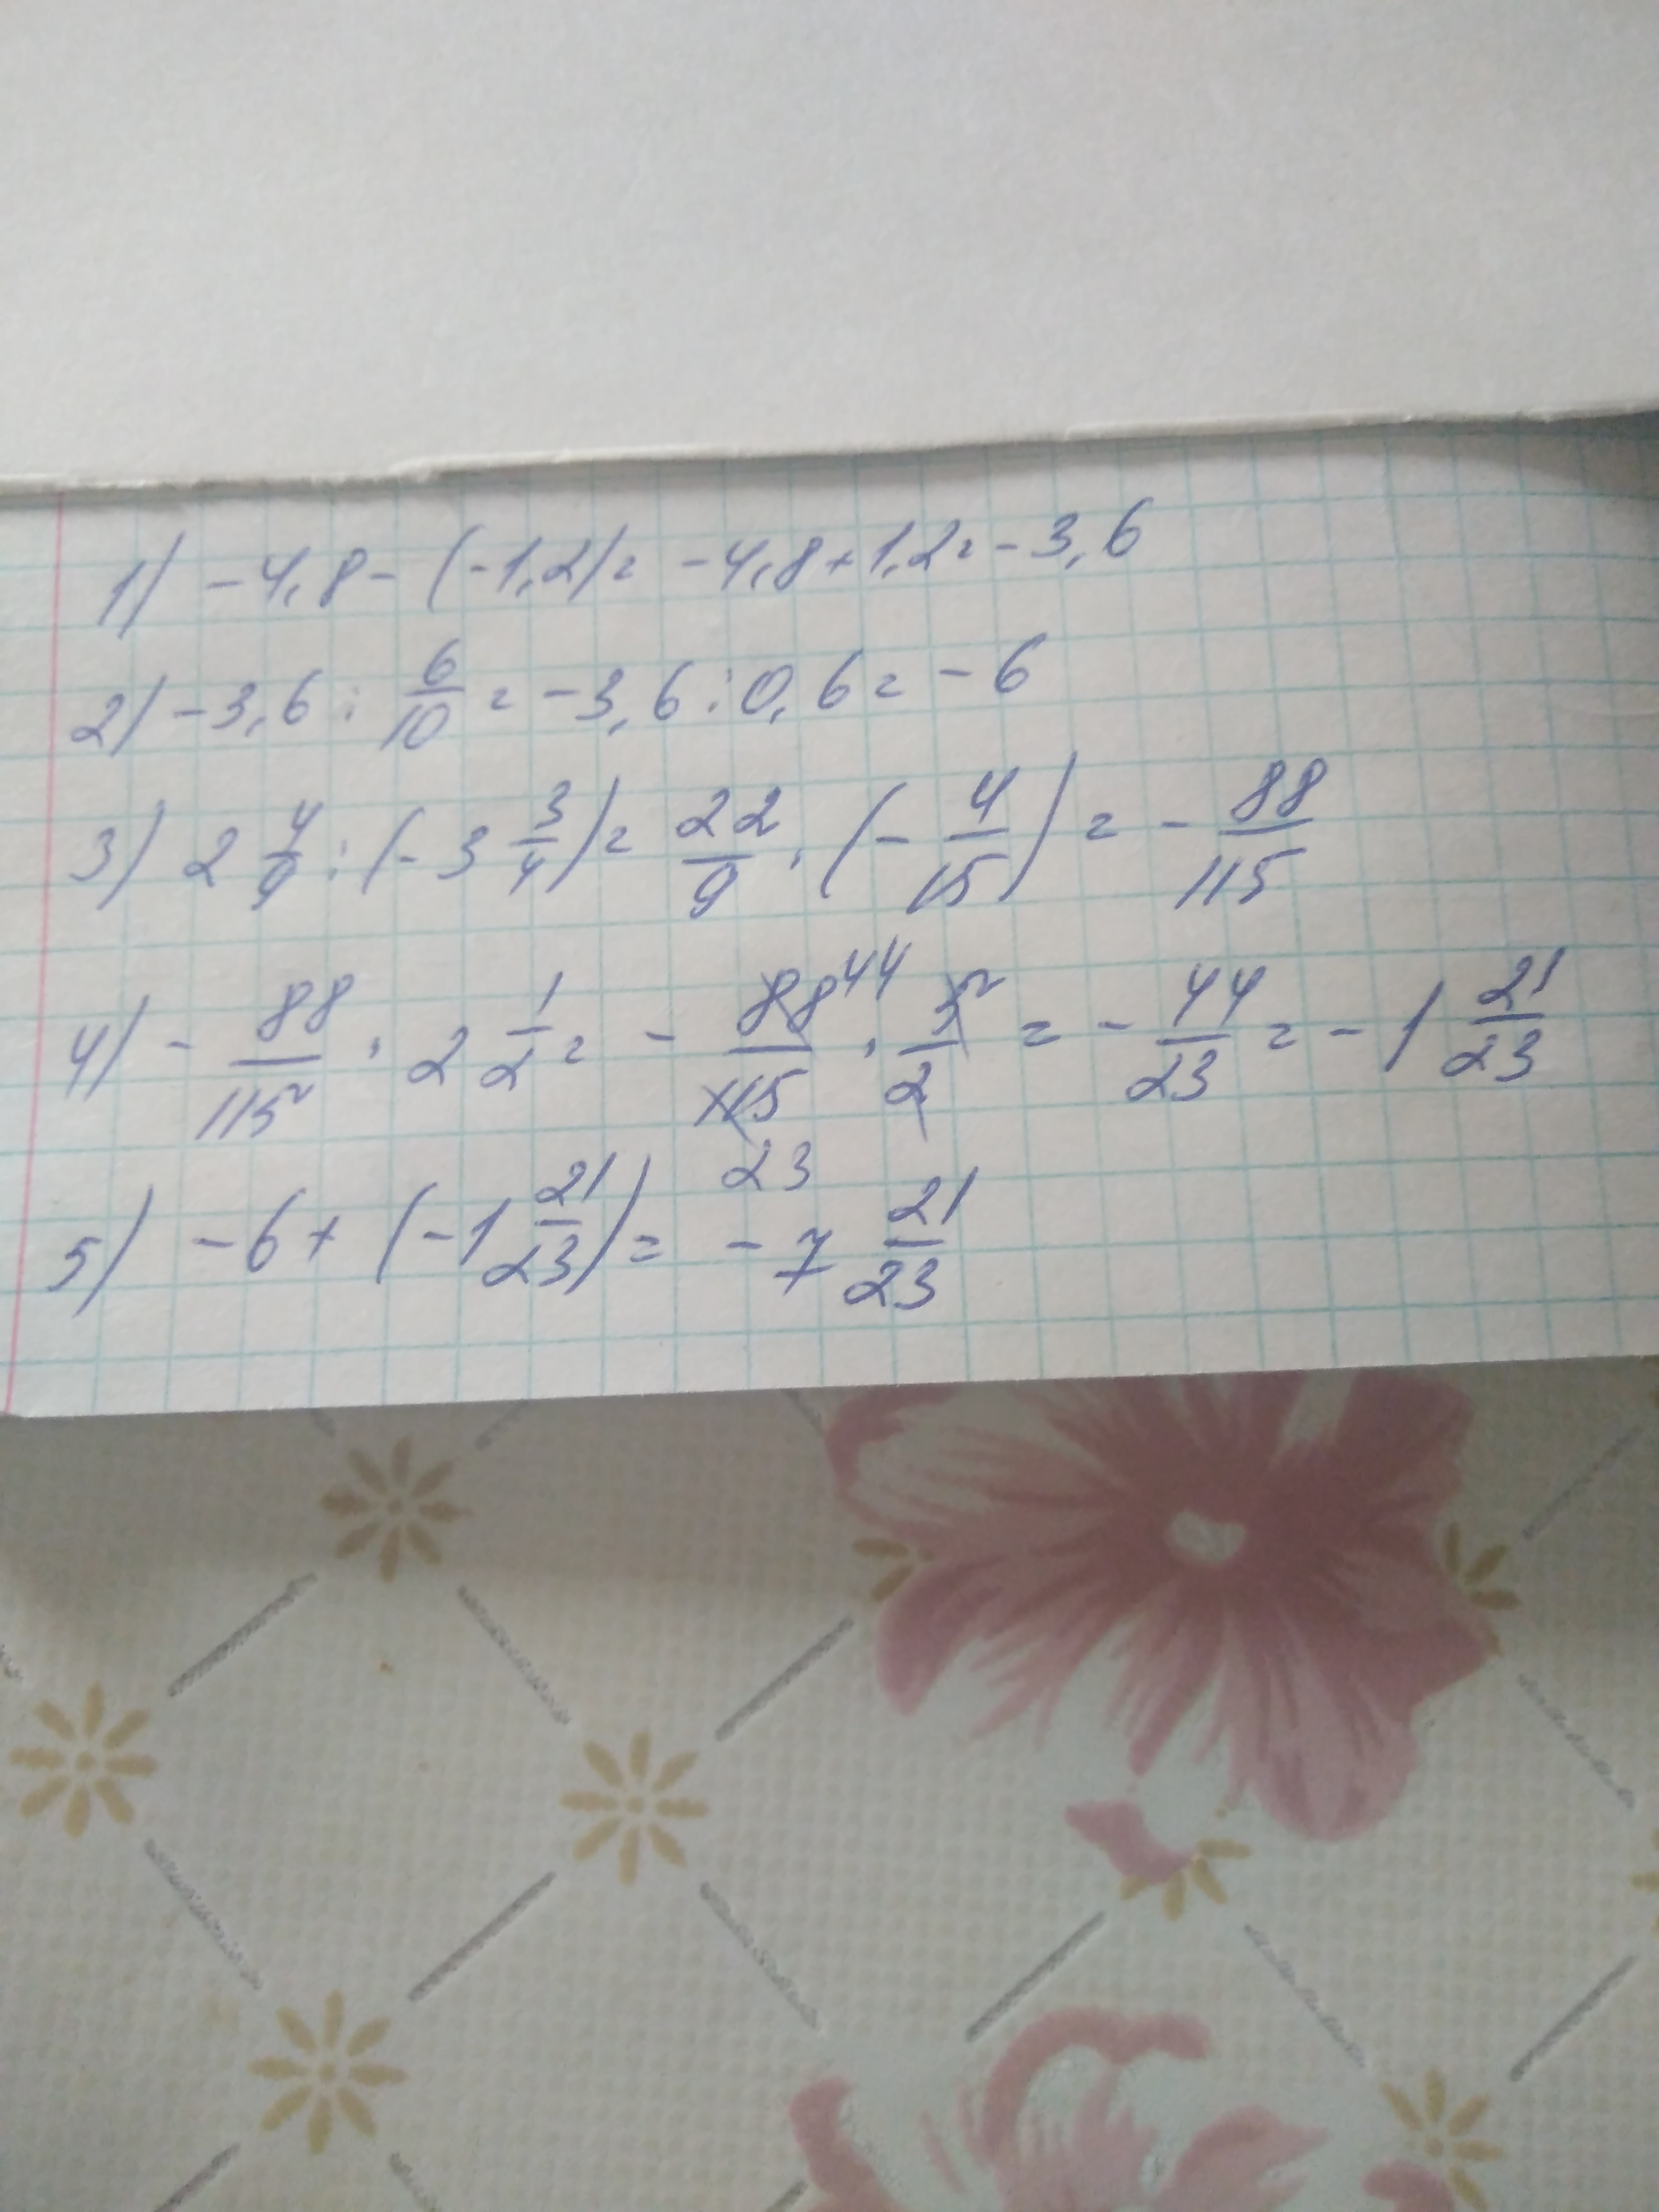 1) -4,8-(-1,2)= -4,8+1,2=-3,6
2) -3,6 : 6/10 = -3,6:0,6= -6
3) 2 4/9 : (-3 3/4)= 22/9 · (-4/15) = - 88/115
4) - 88/115 · 2 1/2 = - 88 44/115 23 · 5/2 = - 44/23 = -1 21/23
5) -6+(-1 21/23)= -7 21/23